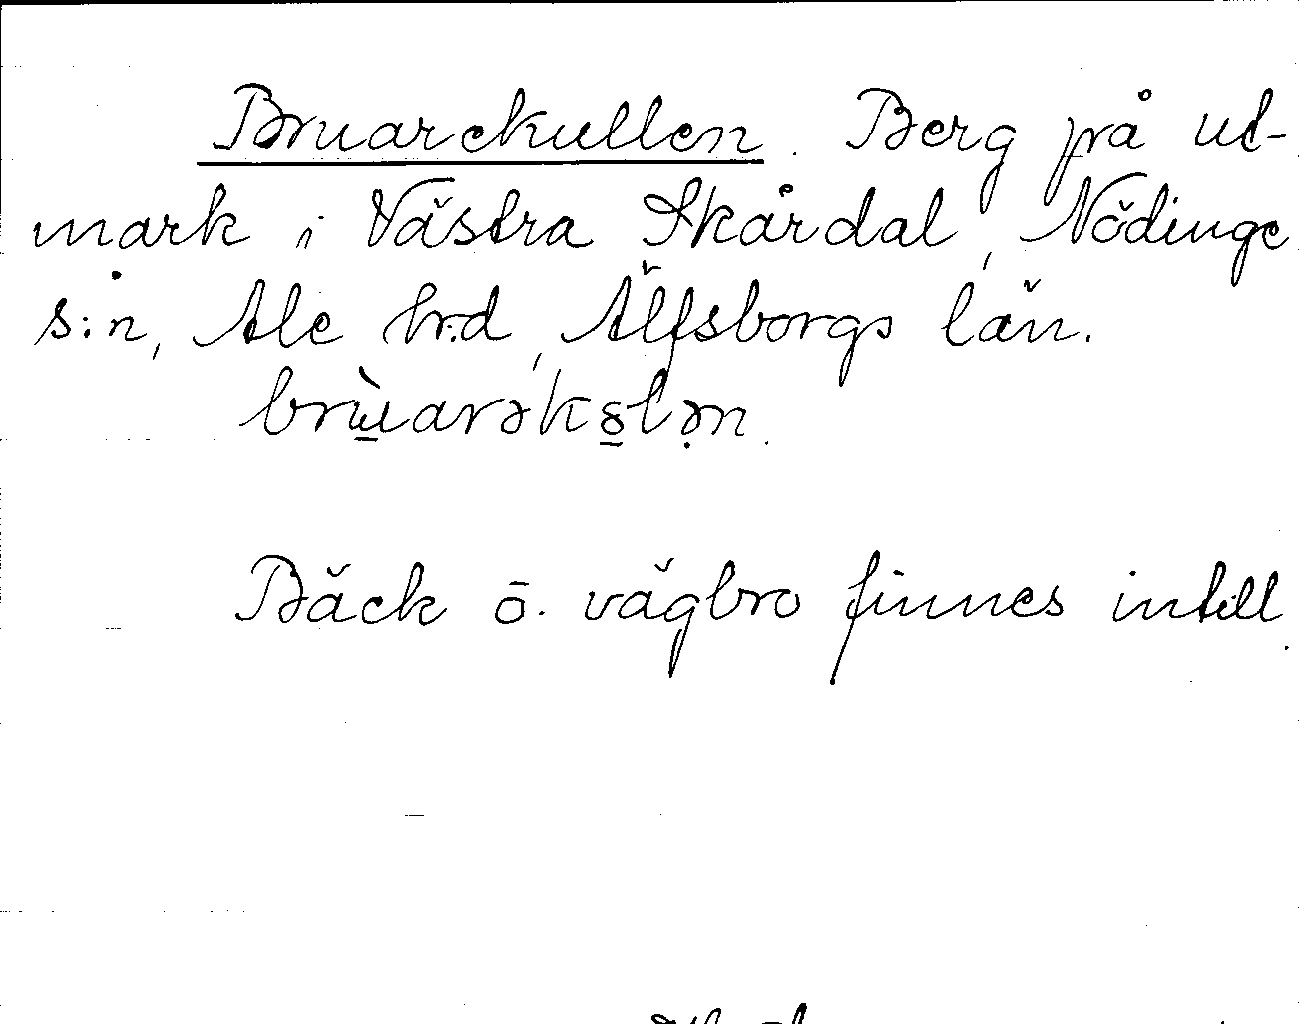 Bruarekullen. Berg på ut-
mark i Västra Skårdal, Nödinge
s:n, Ale hrd, Älfsborgs län.
brùarəkolən.
Bäck o. vägbro finnes intill.